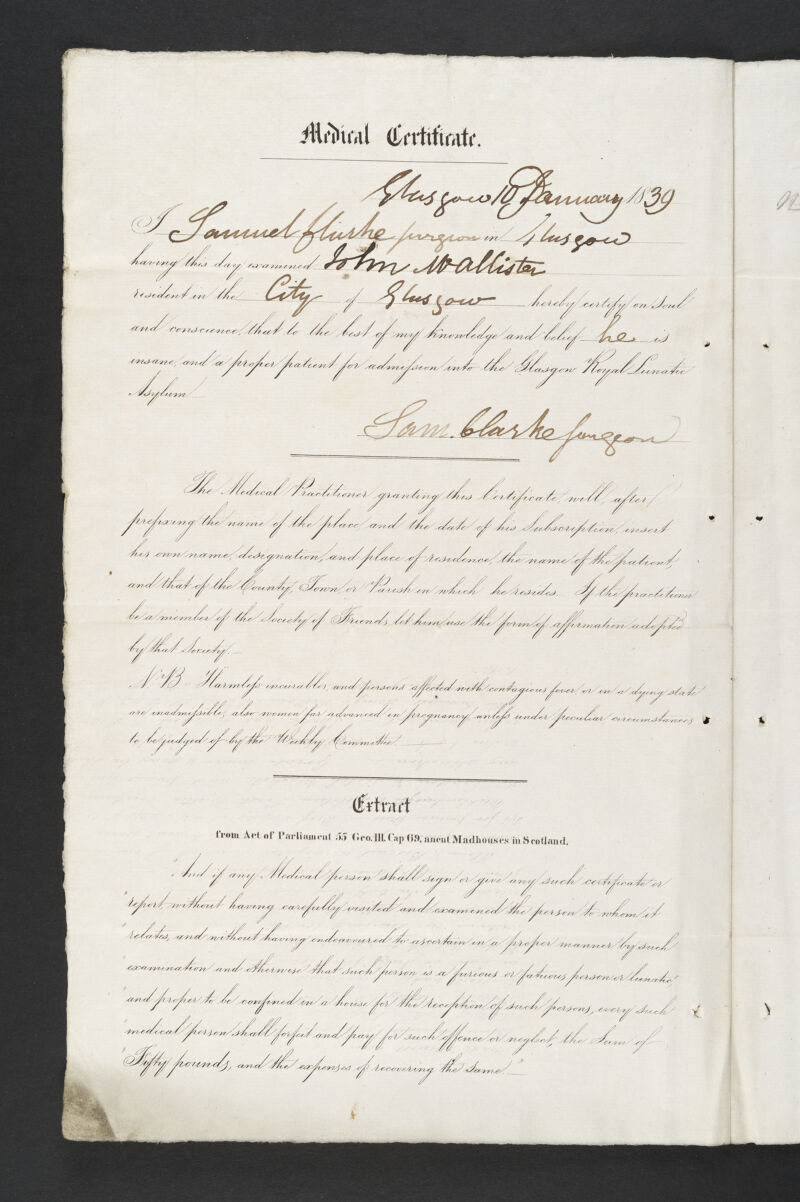 Medical Certificate.
Glasgow 10 January 1839
I Samuel Clarke surgeon in Glasgow
having this day examined John McAllister
resident in the City of Glasgow hereby certify on Soul
and conscience, that to the best of my knowledge and belief he is
insane, and a proper patient for admission into the Glasgow Royal Lunatic
Asylum
Sam. Clarke Surgeon
The Medical Practitioner granting this Certificate will, after
prefixing the name of the place and the date of his Subscription, insert
his own name, designation, and place of residence, the name of the patient,
and that of the County, Town, or Parish in which he resides. If the practitioner
be a member of the Society of Friends, let him use the form of affirmation adopted
by that Society.
N.B. Harmless incurables, and persons affected with contagious fever, or in a dying state
are inadmissible; also women far advanced in pregnancy unless under peculiar circumstances
to be judged of by the Weekly Committee.
Extract
from Act of Parliament 55 Geo. III. Cap 69, anent Madhouses in Scotland.
"And if any Medical person shall sign or give any such certificate or
"report, without having carefully visited and examined the person to whom it
"relates, and without having endeavoured to ascertain in a proper manner by such
"examination and otherwise that such person is a furious or fatuous person or lunatic
"and proper to be confined in a house for the reception of such persons, every such
"medical person shall forfeit and pay for such offence or neglect, the Sum of
"Fifty pounds, and the expenses of recovering the same."